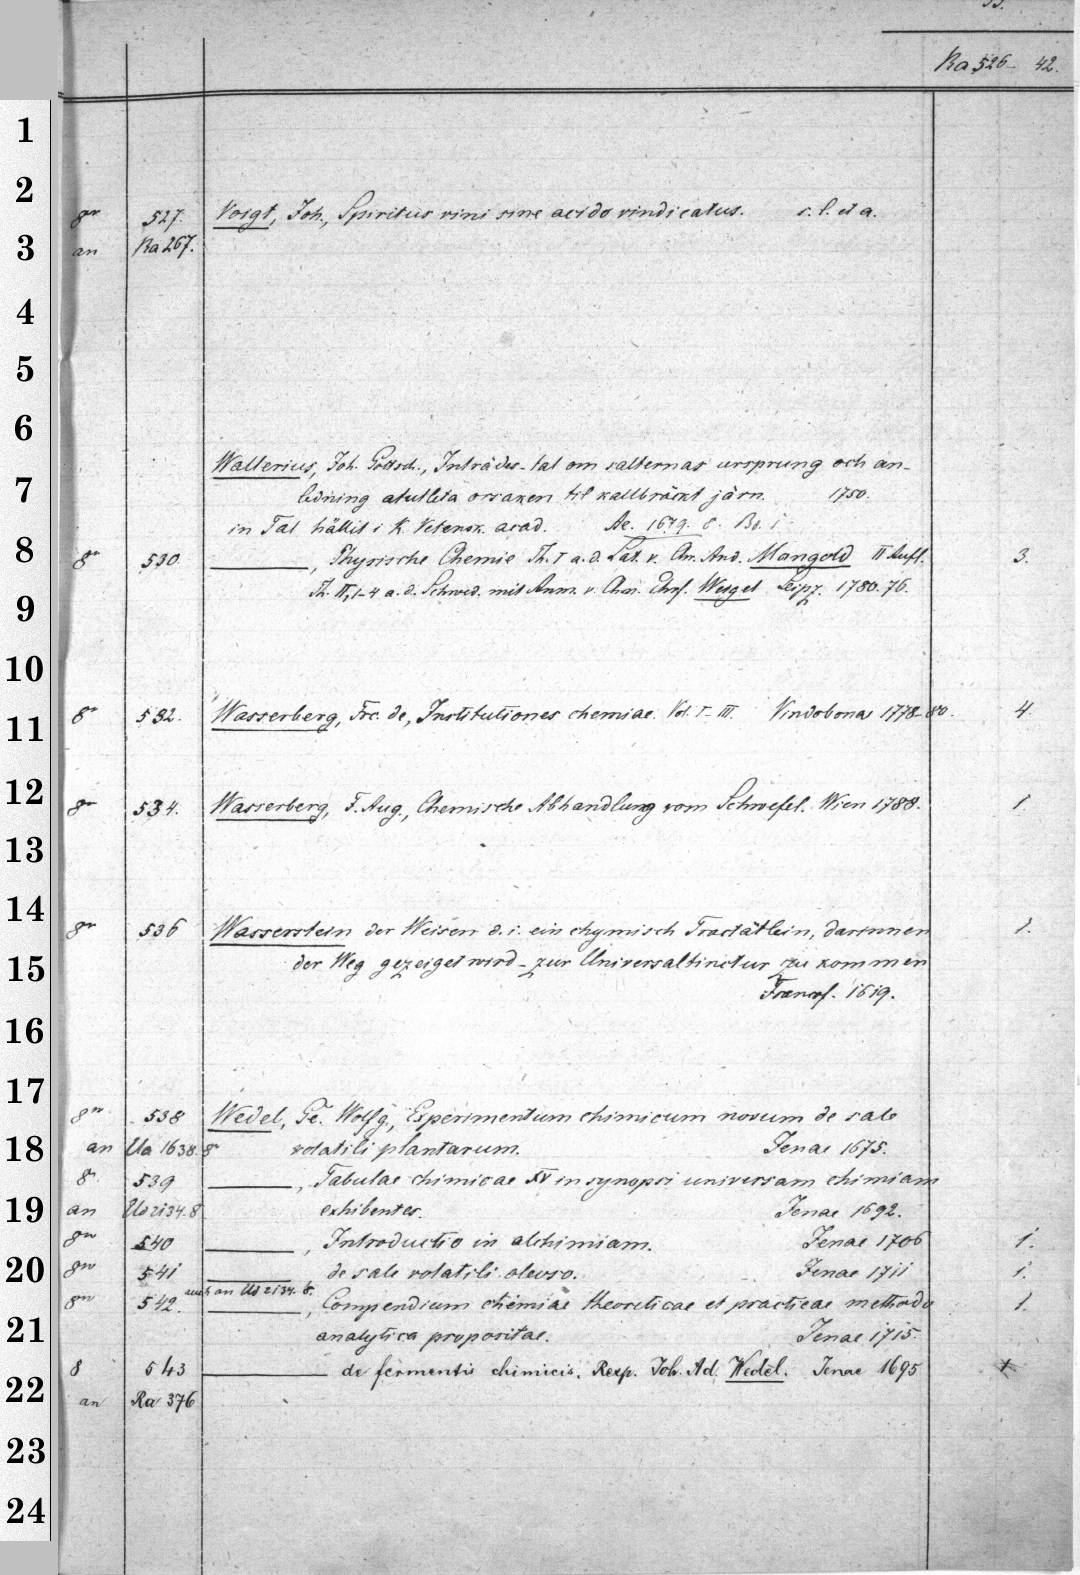 Ra 526 - 42.
8º 527. Voigt, Joh., Spiritus vini sine acido vindicatus. s. l. et a.
an Ra 267.
Wallerius, Joh. Gottsch., Inträdes-tal om salternas ursprung och an-
ledning atutleta orsaken til kallbräckt järn. 1750.
in Tal hållit i K. Vetensk. acad. Ae. 1679. 8. Bd. i
8º 530 ———, Physische Chemie Th. I a. d. Lat. v. Chr. And. Mangold II Aufl. 3.
Th. II, 1-4 a. d. Schwed. mit Anm. v. Chm. Ehrf. Weigel Leipz. 1780. 76.
8º 532. Wasserberg, Frc. de, Institutiones chemiae. Vol. I-III. Vindobonae 1778-80. 4.
8º 534. Wasserberg, F. Aug., Chemische Abhandlung vom Schwefel. Wien 1788. 1.
8º 536 Wasserstein der Weisen d. i. ein chymisch Tractätlein, darinnen 1.
der Weg gezeiget wird - zur Universaltinctur zu kommen
Francof. 1619.
8º 538 Wedel, Ge. Wolfg., Experimentum chimicum novum de sale
an Ua 1638. 8º volatili plantarum. Jenae 1675.
8º 539 ———, Tabulae chimicae XV in synopsi universam chimiam
an Us 2134. 8 exhibentes. Jenae 1692.
8º 540 ———, Introductio in alchimiam. Jenae 1706 1.
8º 541 ——— de sale volatili oleoso. Jenae 1711 1.
auch an Us 2134. 8.
8º 542. ———, Compendium chimiae theoreticae et practicae methodo 1.
analytica propositae. Jenae 1715.
8 543 ——— de fermentis chimicis. Resp. Joh. Ad. Wedel. Jenae 1695 +
an Ra 376
1
2
3
4
5
6
7
8
9
10
11
12
13
14
15
16
17
18
19
20
21
22
23
24